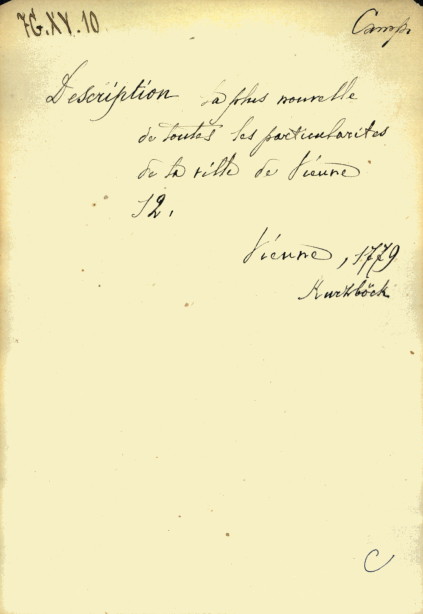 7G.XV.10
Camp.
Description la plus nouvelle
de toutes les particularites
de la ville de Vienne
12.
Vienne, 1779
Kurzböck
C